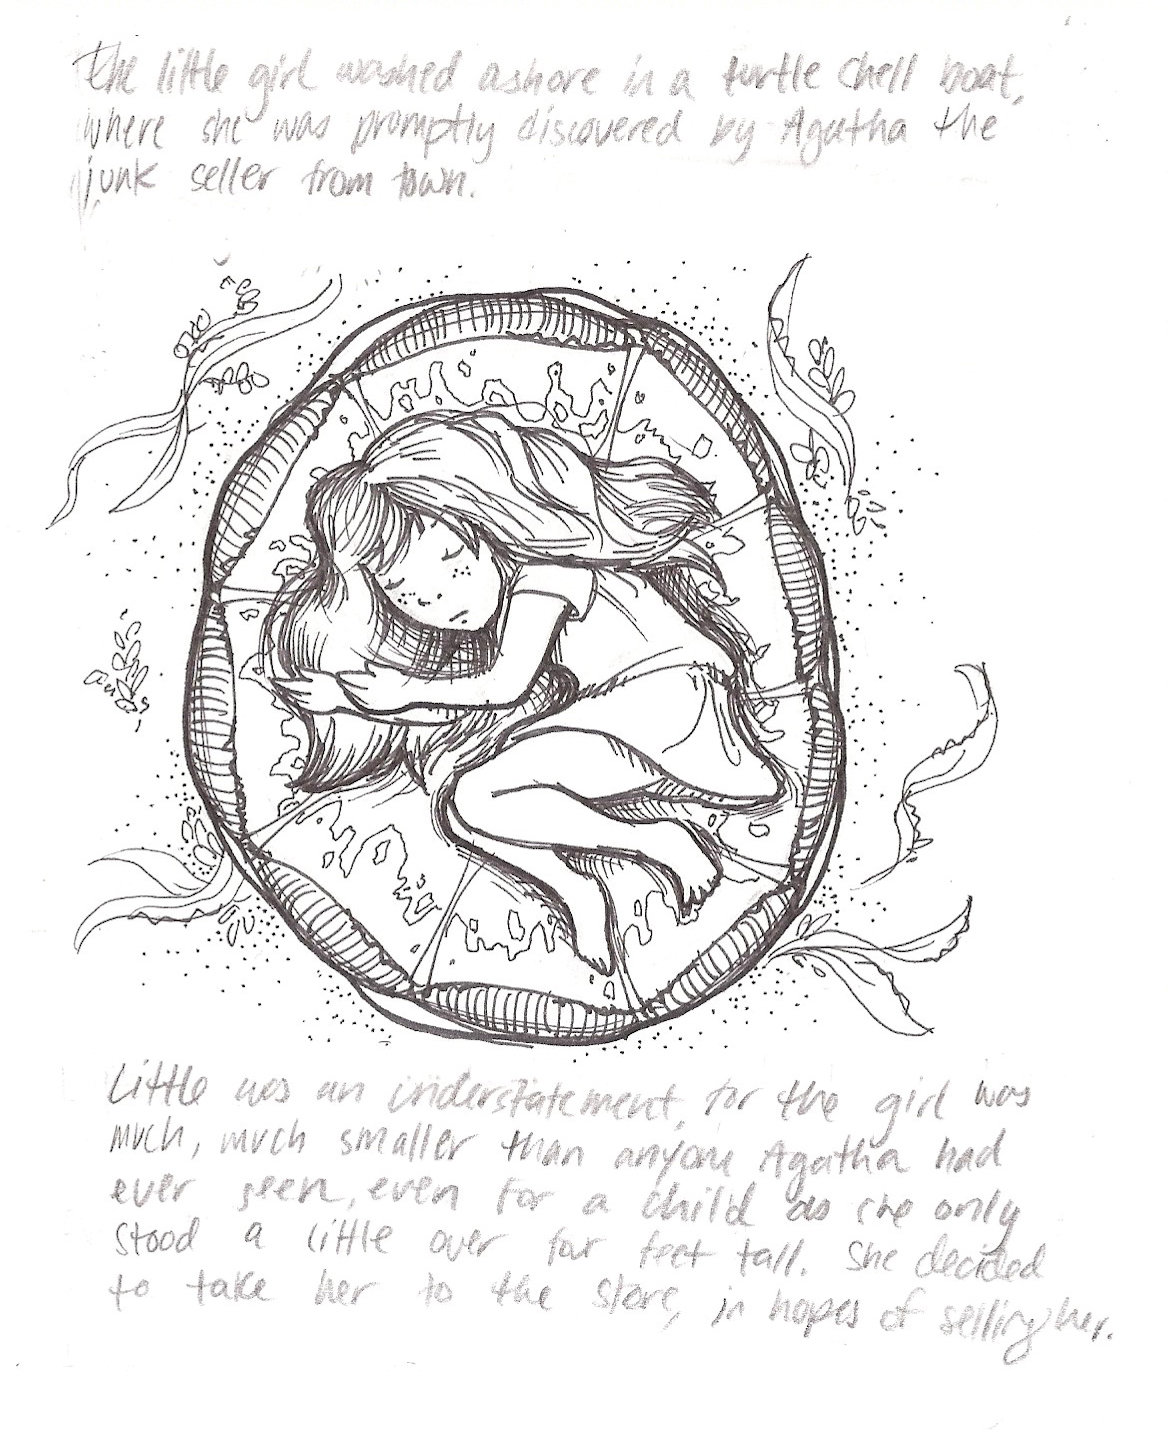 The little girl washed ashore in a turtle shell boat,
where she was promptly discovered by Agatha the
junk seller from town.
Little was an understatement, for the girl was
much, much smaller than anyone Agatha had
ever seen, even for a child as she only
stood a little over four feet tall. She decided
to take her to the store, in hopes of selling her.